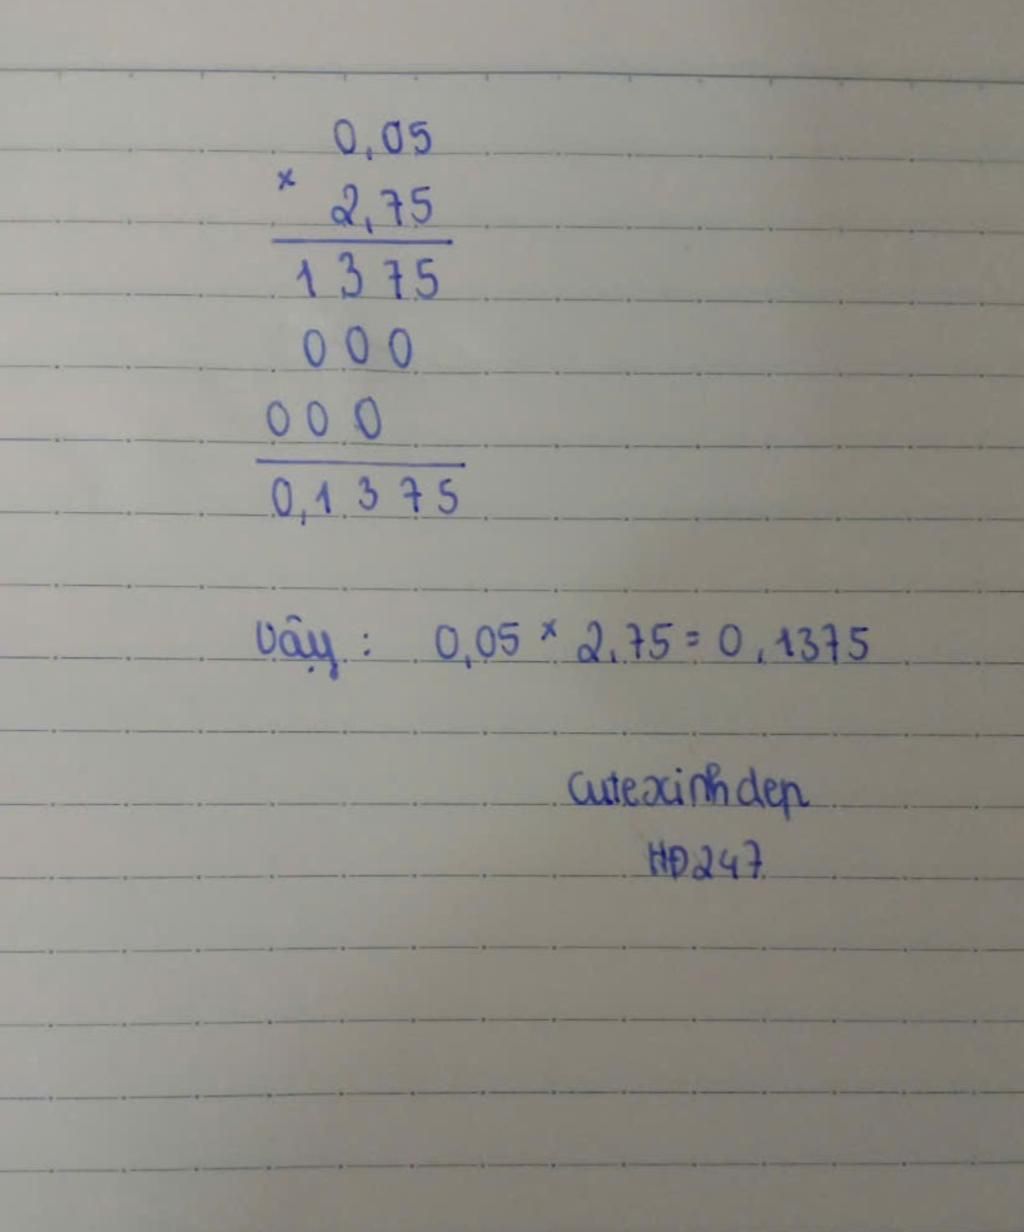 0,05
×
2,75
1375
000
000
0,1375
Vậy : 0,05 × 2,75 = 0,1375
Cutexinhdep
HĐ247